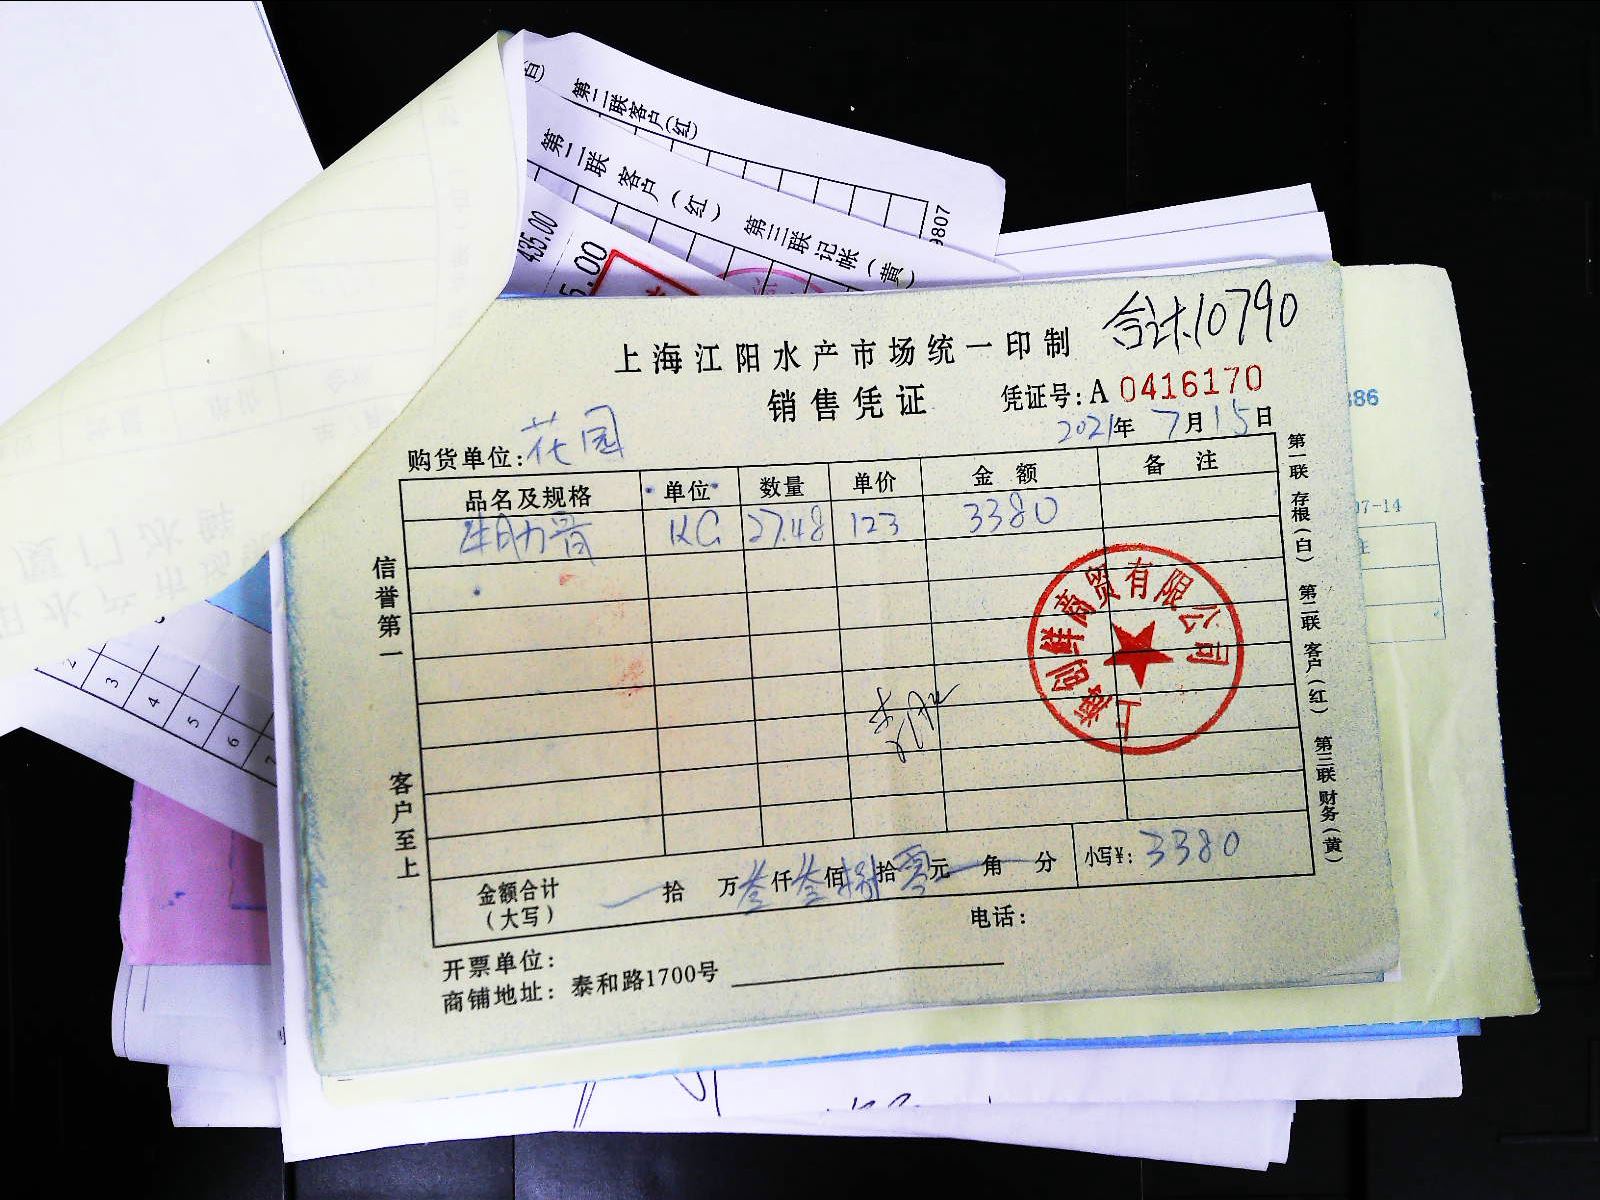 第二联客户(红)
第二联 客户（红） 第三联 记帐（黄）
435.00
5.00
9807
合计10790
上海江阳水产市场统一印制
销售凭证
凭证号:A 0416170
购货单位:花园
2021年 7月15日
品名及规格 单位 数量 单价 金额 备注
牛肋骨 KG 27.48 123 3380
信誉第一
客户至上
上海创鲜商贸有限公司
第一联 存根（白） 第二联 客户（红） 第三联 财务（黄）
金额合计（大写） 拾 万叁仟叁佰捌拾零元 角 分 小写¥: 3380
开票单位:
电话:
商铺地址: 泰和路1700号
386
07-14
2
3
4
5
6
7